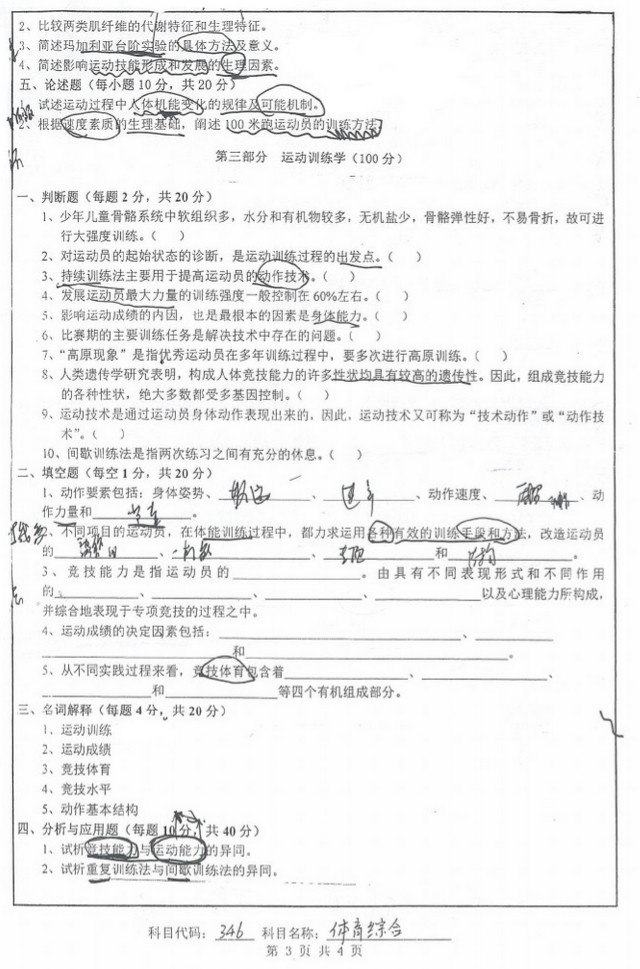 2、比较两类肌纤维的代谢特征和生理特征。
3、简述玛加利亚台阶实验的具体方法及意义。
4、简述影响运动技能形成和发展的生理因素。
五、论述题（每小题 10 分，共 20 分）
试述运动过程中人体机能变化的规律及可能机制。
2、根据速度素质的生理基础，阐述 100 米跑运动员的训练方法
第三部分 运动训练学（100 分）
一、判断题（每题 2 分，共 20 分）
1、少年儿童骨骼系统中软组织多，水分和有机物较多，无机盐少，骨骼弹性好，不易骨折，故可进
行大强度训练。（ ）
2、对运动员的起始状态的诊断，是运动训练过程的出发点。（ ）
3、持续训练法主要用于提高运动员的动作技术。（ ）
4、发展运动员最大力量的训练强度一般控制在 60%左右。（ ）
5、影响运动成绩的内因，也是最根本的因素是身体能力。（ ）
6、比赛期的主要训练任务是解决技术中存在的问题。（ ）
7、“高原现象”是指优秀运动员在多年训练过程中，要多次进行高原训练。（ ）
8、人类遗传学研究表明，构成人体竞技能力的许多性状均具有较高的遗传性。因此，组成竞技能力
的各种性状，绝大多数都受多基因控制。（ ）
9、运动技术是通过运动员身体动作表现出来的，因此，运动技术又可称为“技术动作”或“动作技
术”。（ ）
10、间歇训练法是指两次练习之间有充分的休息。（ ）
二、填空题（每空 1 分，共 20 分）
1、动作要素包括：身体姿势、、、动作速度、、动
作力量和。
、不同项目的运动员，在体能训练过程中，都力求运用各种有效的训练手段和方法，改造运动员
的、、和。
3、竞技能力是指运动员的。由具有不同表现形式和不同作用
的、、、以及心理能力所构成，
并综合地表现于专项竞技的过程之中。
4、运动成绩的决定因素包括：、
和。
5、从不同实践过程来看，竞技体育包含着、、
和等四个有机组成部分。
三、名词解释（每题 4 分，共 20 分）
1、运动训练
2、运动成绩
3、竞技体育
4、竞技水平
5、动作基本结构
四、分析与应用题（每题 10 分，共 40 分）
1、试析竞技能力与运动能力的异同。
2、试析重复训练法与间歇训练法的异同。
科目代码：346 科目名称：体育综合
第 3 页 共 4 页